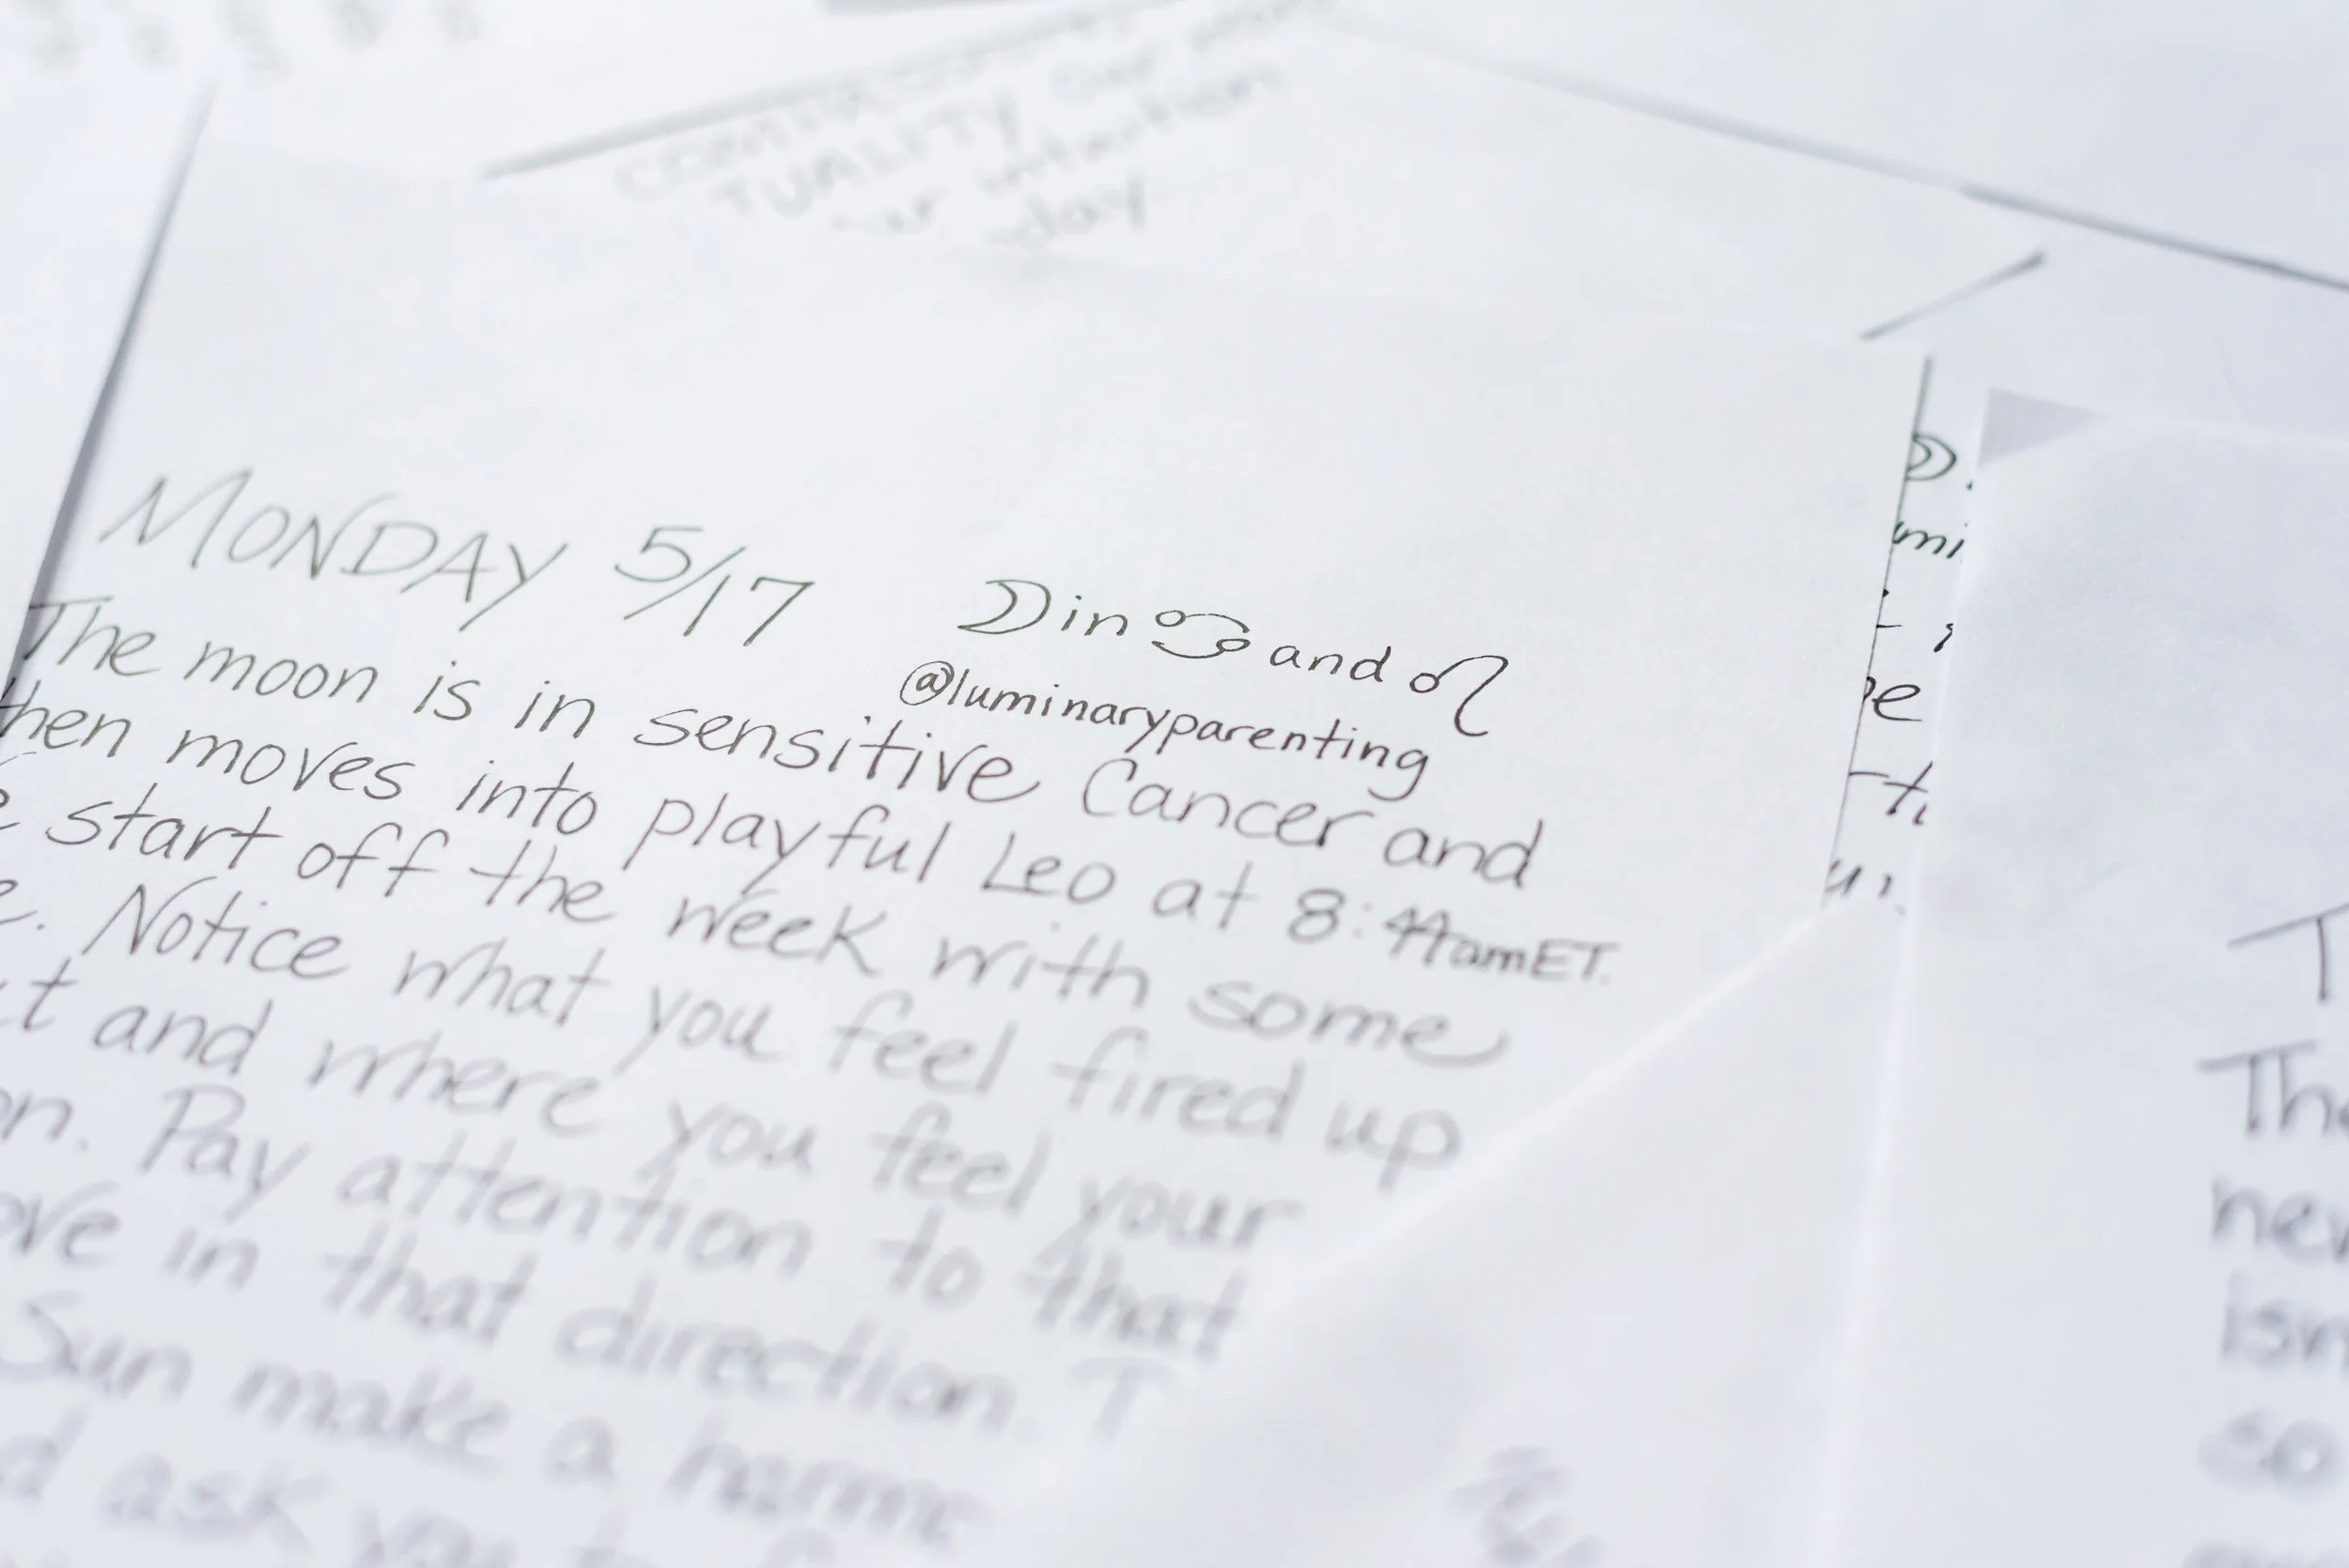 TUALITY
intention
day
MONDAY 5/17
☽ in ♋ and ♌
@luminaryparenting
The moon is in sensitive Cancer and
then moves into playful Leo at 8:44amET.
start off the week with some
Notice what you feel fired up
and where you feel your
Pay attention to that
in that direction. T
Sun make a
ask you
The
isn
so